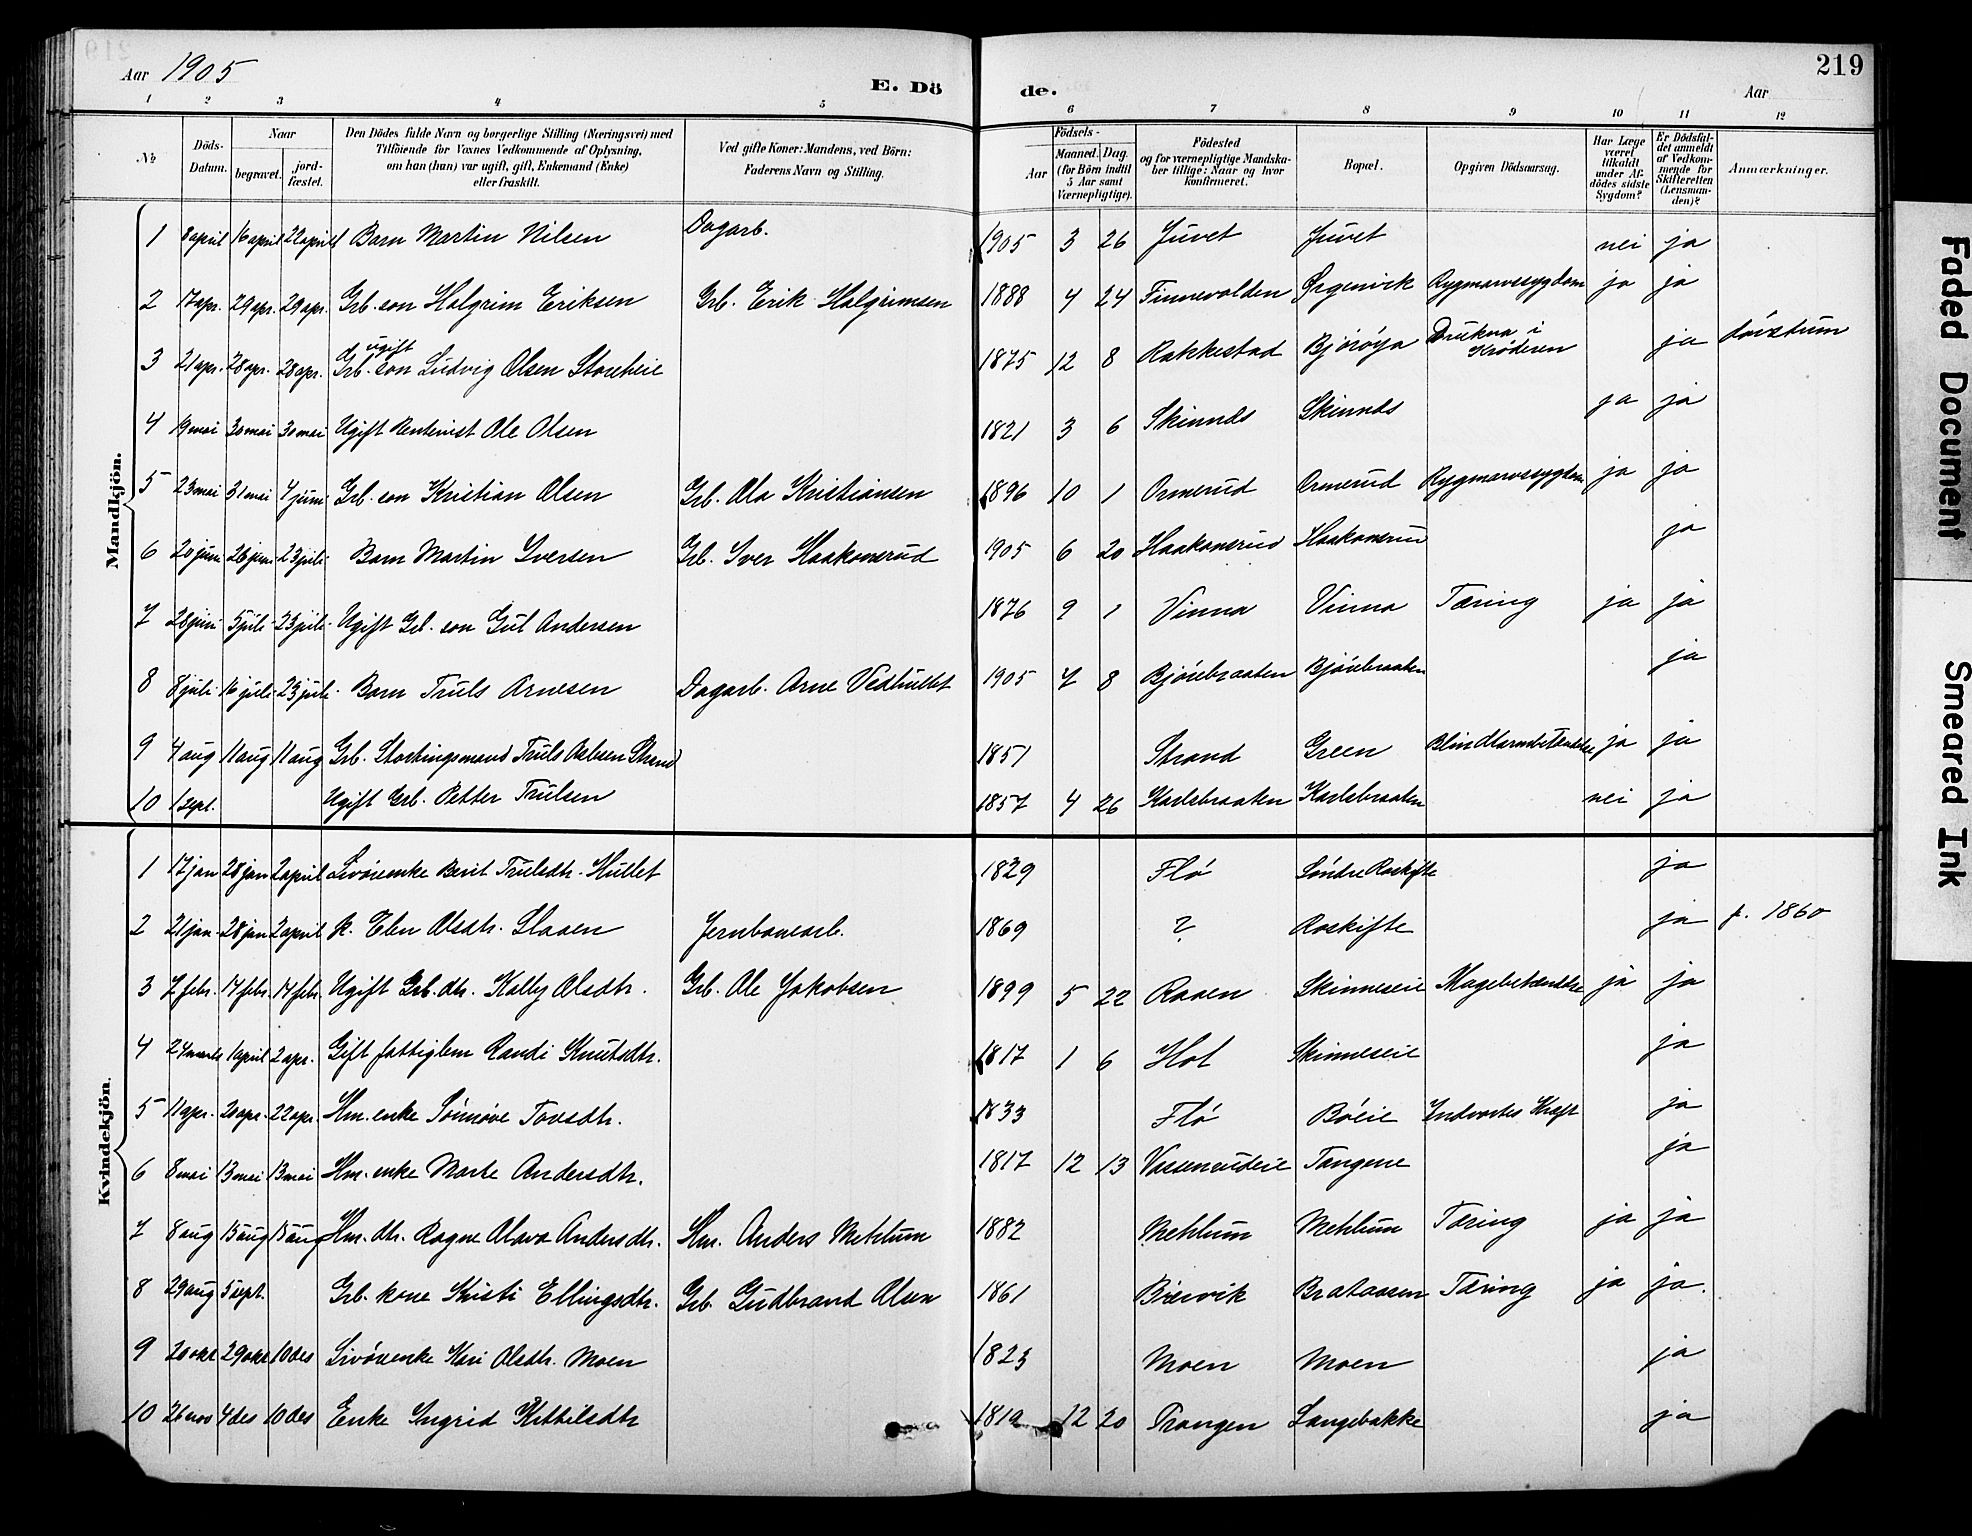 Aar 1905
E. Dö de.
Aar
219
1 2 3 4 5 6 7 8 9 10 11 12
No
Döds-Datum.
Naar
begravet.
jord-fæstet.
Den Dödes fulde Navn og borgerlige Stilling (Næringsvei) med
Tilföiende for Voxnes Vedkommende af Oplysning,
om han (hun) var ugift, gift, Enkemand (Enke)
eller fraskilt.
Ved gifte Koner: Mandens, ved Börn:
Faderens Navn og Stilling.
Födsels-
Aar
Maaned. Dag.
(for Börn indtil
5 Aar samt
Værnepligtige).
Födested
og for værnepligtige Mandska-
ber tillige: Naar og hvor
konfirmeret.
Bopæl.
Opgiven Dödsaarsag.
Har Læge
været
tilkaldt
under Af-
dödes sidste
Sygdom?
Er Dödsfal-
det anmeldt
af Vedkom-
mende for
Skifteretten
(Lensman-
den)?
Anmærkninger.
Mandkjön.
1 8 april 16 april 22 april Barn Martin Nilsen Dagarb. 1905 3 26 Juvet Juvet nei ja
2 17 apr. 29 apr. 29 apr. Grb. søn Halgrim Eriksen Grb. Erik Halgrimsen 1888 4 24 Finnevolden Ørgenvik Rygmarvssygdom ja ja
3 21 apr. 28 apr. 28 apr. ugift Grb. søn Ludvig Olsen Storeheie 1875 12 8 Rakkestad Bjørøya Drukna i Krøderen ja
4 19 mai 30 mai 30 mai Ugift Rentenist Ole Olsen 1821 3 6 Skinnds Skinnds ja ja
5 23 mai 31 mai 4 juni Grb. søn Kristian Olsen Grb. Ola Kristiansen 1896 10 1 Ormerud Ormerud Rygmarvssygdom ja ja
6 20 juni 26 juni 23 juli Barn Martin Iversen Grb. Iver Haakonsrud 1905 6 20 Haakonsrud Haakonsrud ja
7 28 juni 5 juli 23 juli Ugift Grb. søn Gul Andersen 1876 9 1 Vinna Vinna Tæring ja ja
8 8 juli 16 juli 23 juli Barn Truls Arnesen Dagarb. Arne Vedhullet 1905 7 8 Bjørebraaten Bjørebraaten ja
9 4 aug 11 aug 11 aug Grb. Stortingsmand Truls Strand 1851 Strand Green Blindtarmbetændelse ja ja
10 1 sept. Ugift Grb. Petter Trulsen 1857 4 26 Karlsbraaten Karlsbraaten nei ja
Kvindekjön.
1 17 jan 28 jan 2 april Livørenke Berit Trulsdtr. Hullet 1829 Flø Søndre Roskifte ja
2 21 jan 28 jan 2 april k. Elen Olsdtr. Slaaen Jernbanearb. 1869 ? Roskifte ja f. 1860
3 7 febr. 14 febr. 14 febr. Ugift Grb. dtr. Kalby Olsdtr. Grb. Ole Jakobsen 1899 5 22 Raaen Skinneseie Magebetændelse ja ja
4 24 marts 1 april 2 apr. Gift fattiglem Randi Knutsdtr. 1817 1 6 Hol Skinneseie ja
5 11 apr. 20 apr. 22 apr. Hm. enke Sønnøve Tovsdtr. 1833 Flø Bøeie Indvortes Kræft ja
6 8 mai 13 mai 13 mai Hm. enke Marte Andersdtr. 1817 12 13 Tangene ja
7 8 aug 15 aug 15 aug Hm. dtr. Ragne Olava Andersdtr. Hm. Anders Mehlum 1882 Mehlum Mehlum Tæring ja ja
8 29 aug 5 sept. Grb. kone Kristi Ellingsdtr. Grb. Gudbrand Olsen 1861 Bærvik Brataasen Tæring ja ja.
9 20 okt 29 okt 10 des Livørenke Kari Olsdtr. Moen 1823 Moen Moen ja
10 26 nov 4 des 10 des Enke Ingrid Kittilsdtr 1812 12 20 Trangen Langebakke ja
Faded Document
Smeared Ink